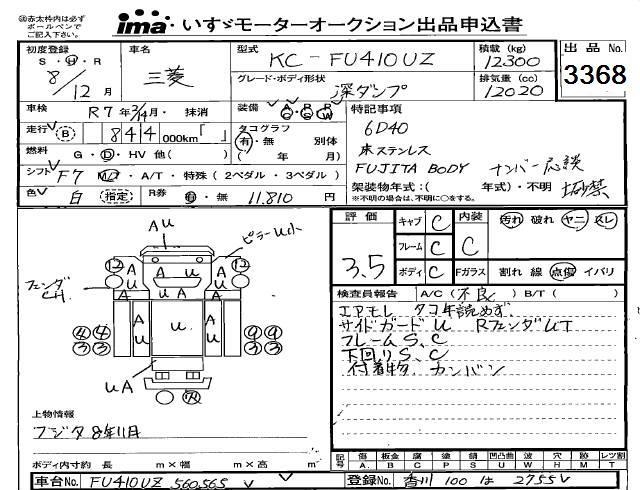 ㊟赤太枠内は必ず
ボールペンで
ご記入下さい。
ima いすゞモーターオークション出品申込書
初度登録
S・H・R
8/12月
車名
三菱
型式
KC-FU410UZ
グレード・ボディ形状
深ダンプ
積載(kg)
12300
排気量(cc)
12020
出品No.
3368
車検
R7年2/14月・抹消
装備
A P R
G G W
特記事項
6D40
床ステンレス
FUJITA BODY ナンバー応談
架装物年式:( 年式)・不明
※不明の場合は、不明に○をする。
走行 B 844 000km「 」
タコグラフ
有・無 別体
( 年 月)
燃料
G・D・HV 他( )
シフト
F7 M/T・A/T・特殊(2ペダル・3ペダル)
色
白 指定
R券
有・無 11.810 円
評価
3.5
キャブ C
フレーム C
ボディ C
内装
C
Fガラス
汚れ 破れ ヤニ スレ
割れ 線 点傷 イバリ
検査員報告 A/C(不良) B/T( )
エアモレ タコ年読めず。
サイドガードU RフェンダUT
フレームS、C
下回りS、C
付着物 カンバン
AU
ピラーU小
フェンダ
CH
12 12
A A
U U
A UA A
A U
U
A
U
4 4
3 3
9 9
3 3
UA
上物情報
フジタ 8年11月
ボディ内寸約 長 m×幅 m×高 m
記号
傷 板金 腐 塗 錆 凹凸曲 波 穴 跡 レツ割
A. B. C P S U W H M T
車台No. FU410UZ 560565
登録No. 香川 100 は 2755